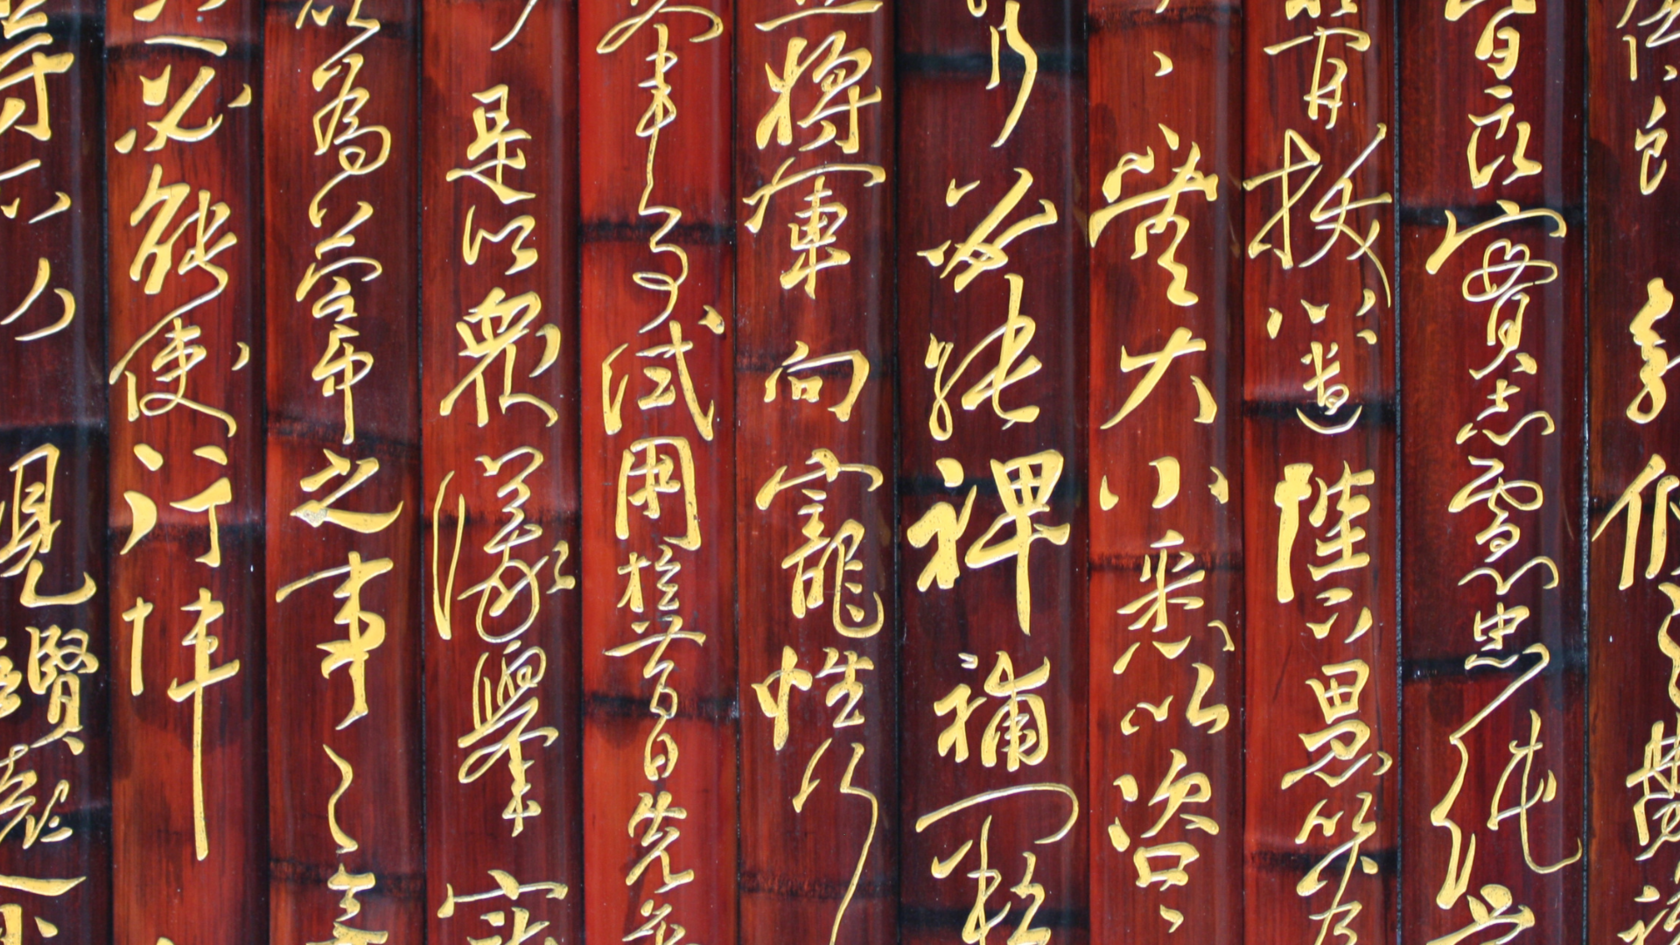 郎
皆良實志慮忠純
拔以遺陛下愚以為
無大小悉以咨
行必能裨補闕漏
將軍向寵性行
軍事試用於昔日先帝
是以眾議舉寵
以為營中之事
之必能使行陣
親賢